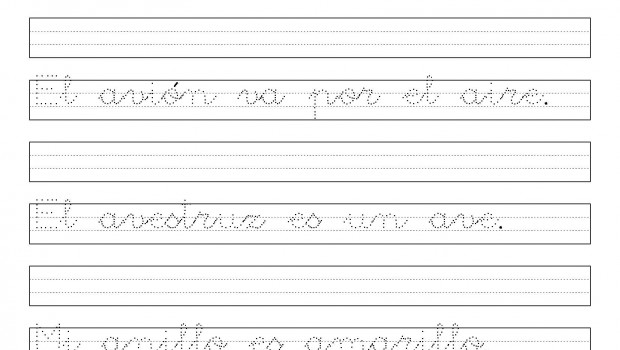 El avión va por el aire.
El avestruz es un ave.
Mi anillo es amarillo